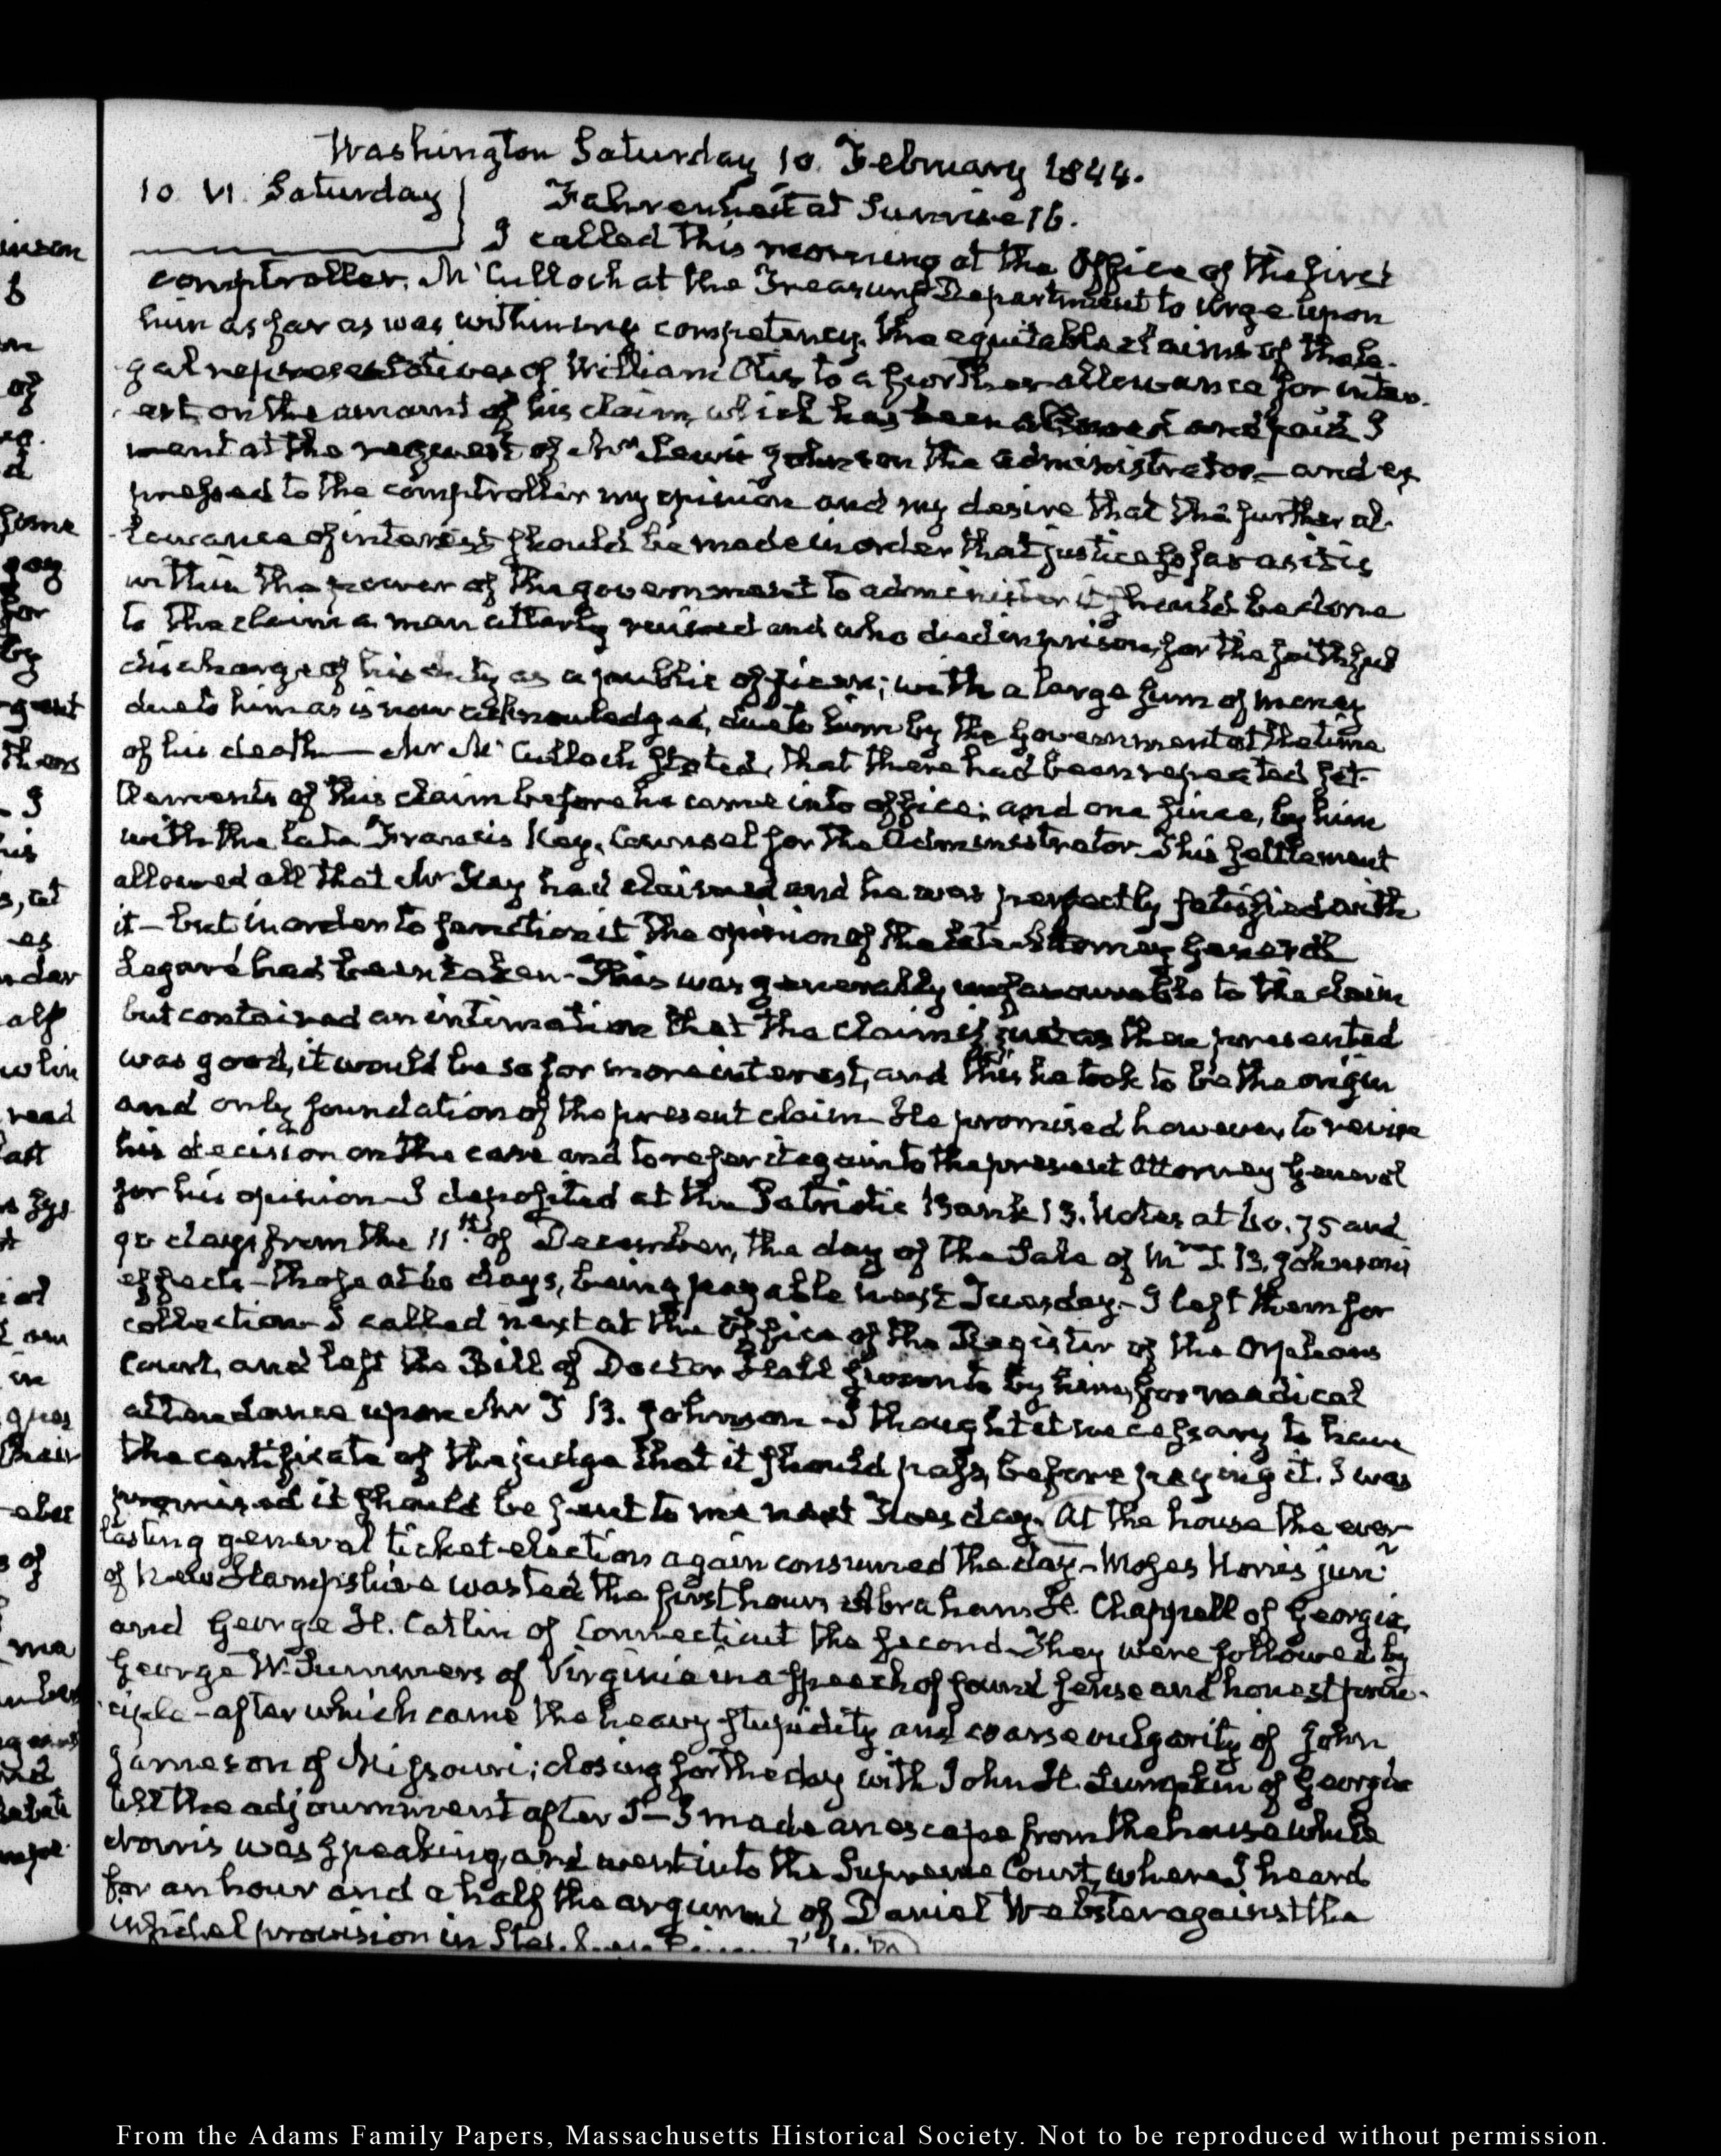 Washington Saturday 10. February 1844.
10. VI. Saturday
Fahrenheit at Sunrise 16.
I called this morning at the Office of the first
comptroller. McCulloch at the Treasury Department to urge upon
him as far as was within my competency, the equitable claims of the le-
gal representatives of William Otis to a further allowance for inter-
est on the amount of his claim, which has been allowed and paid I
went at the request of Mr Lewis Johnson the administrator— and ex
pressed to the comptroller my opinion and my desire that the further al-
lowance of interest should be made in order that justice so far as it is
within the power of the government to administer it should be done
to the claim a man utterly ruined and who died in prison, for the faithful
discharge of his duty as a public officer; with a large sum of money
due to him as is now acknowledged, due to him by the government at the time
of his death— Mr McCulloch stated, that there had been repeated set-
tlements of this claim before he came into office; and one since, by him
with the late Francis Key, Counsel for the Administrator. This settlement
allowed all that Mr Key had claimed and he was perfectly satisfied with
it— but in order to sanction it the opinion of the late Attorney General
Legaré had been taken. This was generally unfavourable to the claim
but contained an intimation that the claim if just as then presented
was good, it would be so for more interest, and this he took to be the origin
and only foundation of the present claim— He promised however to revise
his decision on the case and to refer it again to the present Attorney General
for his opinion— I deposited at the Patriotic Bank 13. Notes at 60. 75 and
90 days from the 11th. of December, the day of the Sale of Mrs T. B. Johnson's
effects— those at 60 days, being payable next Tuesday.— I left them for
collection— I called next at the Office of the Register of the Orphans
Court, and left the Bill of Doctor Hall sent to by him, for medical
attendance upon Mr T B. Johnson— I thought it necessary to have
the certificate of the judge that it should pass, before paying it. I was
promised it should be sent to me next Tuesday. At the house the ever-
lasting general ticket election again consumed the day.— Moses Norris junr
of New Hampshire wasted the first hour. Abraham H. Chappell of Georgia,
and George S. Catlin of Connecticut the second. They were followed by
George W. Summers of Virginia in a speech of sound sense and honest prin-
ciple— after which came the heavy stupidity and coarse vulgarity of John
Jameson of Missouri; closing for the day with John H. Lumpkin of Georgia
till the adjournment after 3— I made an escape from the house while
Norris was speaking, and went into the Supreme Court, where I heard
for an hour and a half the argument of Daniel Webster against the
infidel provision in
From the Adams Family Papers, Massachusetts Historical Society. Not to be reproduced without permission.